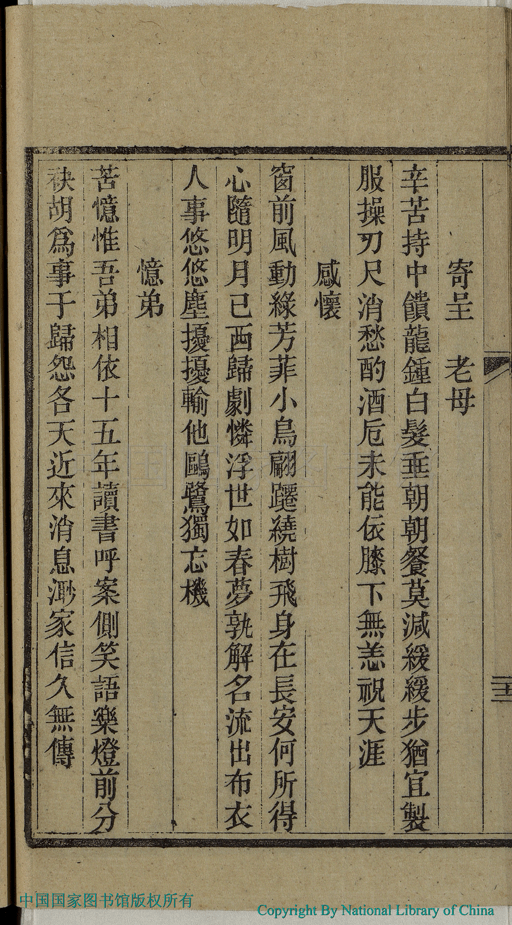 寄呈　老母
辛苦持中饋龍鍾白髮垂朝朝餐莫減緩緩步猶宜製
服操刀尺消愁酌酒卮未能依膝下無恙祝天涯
感懷
窗前風動綠芳菲小鳥翩躚繞樹飛身在長安何所得
心隨明月已西歸劇憐浮世如春夢孰解名流出布衣
人事悠悠塵擾擾輸他鷗鷺獨忘機
憶弟
苦憶惟吾弟相依十五年讀書呼案側笑語樂燈前分
袂胡爲事于歸怨各天近來消息渺家信久無傳
二十二
中国国家图书馆版权所有
Copyright By National Library of China